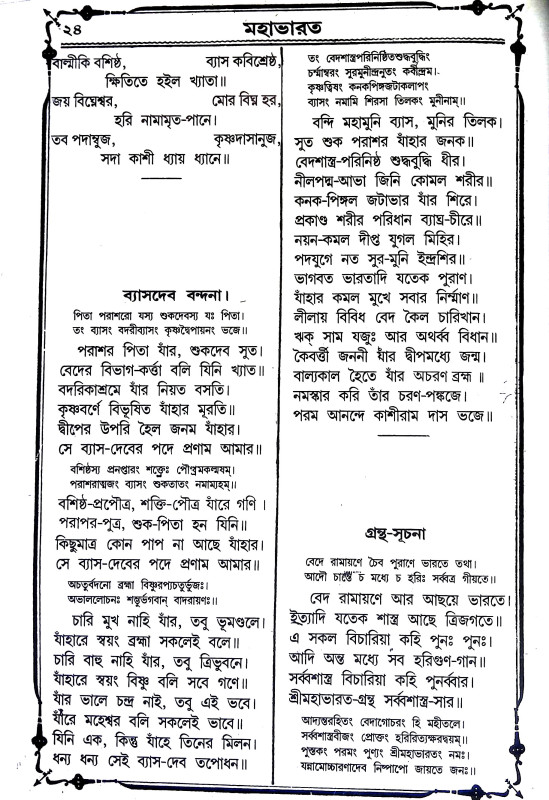 ২৪
মহাভারত
বাল্মীকি বশিষ্ঠ, ব্যাস কবিশ্রেষ্ঠ,
ক্ষিতিতে হইল খ্যাতা॥
জয় বিঘ্নেশ্বর, মোর বিঘ্ন হর,
হরি নামামৃত-পানে।
তব পদাম্বুজ, কৃষ্ণদাসানুজ,
সদা কাশী ধ্যায় ধ্যানে॥
ব্যাসদেব বন্দনা।
পিতা পরাশরো যস্য শুকদেবস্য যঃ পিতা।
তং ব্যাসং বদরীব্যাসং কৃষ্ণদ্বৈপায়নং ভজে॥
পরাশর পিতা যাঁর, শুকদেব সুত।
বেদের বিভাগ-কর্ত্তা বলি যিনি খ্যাত॥
বদরিকাশ্রমে যাঁর নিয়ত বসতি।
কৃষ্ণবর্ণে বিভূষিত যাঁহার মূরতি॥
দ্বীপের উপরি হৈল জনম যাঁহার।
সে ব্যাস-দেবের পদে প্রণাম আমার॥
বশিষ্ঠস্য প্রনপ্তারং শক্তেঃ পৌত্রমকল্মষম্।
পরাশরাত্মজং ব্যাসং শুকতাতং নমাম্যহম্॥
বশিষ্ঠ-প্রপৌত্র, শক্তি-পৌত্র যাঁরে গণি ।
পরাপর-পুত্র, শুক-পিতা হন যিনি॥
কিছুমাত্র কোন পাপ না আছে যাঁহার।
সে ব্যাস-দেবের পদে প্রণাম আমার॥
অচতুর্বদনো ব্রহ্মা বিষ্ণুরপ্যচতুর্ভুজঃ।
অভাললোচনঃ শম্ভুর্ভগবান্ বাদরায়ণঃ॥
চারি মুখ নাহি যাঁর, তবু ভূমণ্ডলে।
যাঁহারে স্বয়ং ব্রহ্মা সকলেই বলে॥
চারি বাহু নাহি যাঁর, তবু ত্রিভুবনে।
যাঁহারে স্বয়ং বিষ্ণু বলি সবে গণে॥
যাঁর ভালে চন্দ্র নাই, তবু এই ভবে।
যাঁরে মহেশ্বর বলি সকলেই ভাবে॥
যিনি এক, কিন্তু যাঁহে তিনের মিলন।
ধন্য ধন্য সেই ব্যাস-দেব তপোধন॥
তং বেদশাস্ত্রপরিনিষ্ঠিতশুদ্ধবুদ্ধিং
চর্ম্মাম্বরং সুরমুনীন্দ্রনুতং কবীন্দ্রম।
কৃষ্ণত্বিষং কনকপিঙ্গজটাকলাপং
ব্যাসং নমামি শিরসা তিলকং মুনীনাম্॥
বন্দি মহামুনি ব্যাস, মুনির তিলক।
সুত শুক পরাশর যাঁহার জনক॥
বেদশাস্ত্র-পরিনিষ্ঠ শুদ্ধবুদ্ধি ধীর।
নীলপদ্ম-আভা জিনি কোমল শরীর॥
কনক-পিঙ্গল জটাভার যাঁর শিরে।
প্রকাণ্ড শরীর পরিধান ব্যাঘ্র-চীরে॥
নয়ন-কমল দীপ্ত যুগল মিহির।
পদযুগে নত সুর-মুনি ইন্দ্রশির॥
ভাগবত ভারতাদি যতেক পুরাণ।
যাঁহার কমল মুখে সবার নির্ম্মাণ॥
লীলায় বিবিধ বেদ কৈল চারিখান।
ঋক্ সাম যজুঃ আর অথর্ব্ব বিধান॥
কৈবর্ত্তী জননী যাঁর দ্বীপমধ্যে জন্ম।
বাল্যকাল হৈতে যাঁর অচরণ ব্রহ্ম ॥
নমস্কার করি তাঁর চরণ-পঙ্কজে।
পরম আনন্দে কাশীরাম দাস ভজে॥
গ্রন্থ-সূচনা
বেদে রামায়ণে চৈব পুরাণে ভারতে তথা।
আদৌ চান্তে চ মধ্যে চ হরিঃ সর্ব্বত্র গীয়তে॥
বেদ রামায়ণে আর আছয়ে ভারতে।
ইত্যাদি যতেক শাস্ত্র আছে ত্রিজগতে॥
এ সকল বিচারিয়া কহি পুনঃ পুনঃ।
আদি অন্ত মধ্যে সব হরিগুণ-গান॥
সর্ব্বশাস্ত্র বিচারিয়া কহি পুনর্ব্বার।
শ্রীমহাভারত-গ্রন্থ সর্ব্বশাস্ত্র-সার॥
আদ্যন্তরহিতং বেদাগোচরং হি মহীতলে।
সর্ব্বশাস্ত্রবীজং প্রোক্তং হরিরিত্যক্ষরদ্বয়ম্॥
পুস্তকং পরমং পুণ্যং শ্রীমহাভারতং নমঃ।
যন্নামোচ্চারণাদেব নিষ্পাপো জায়তে জনঃ॥